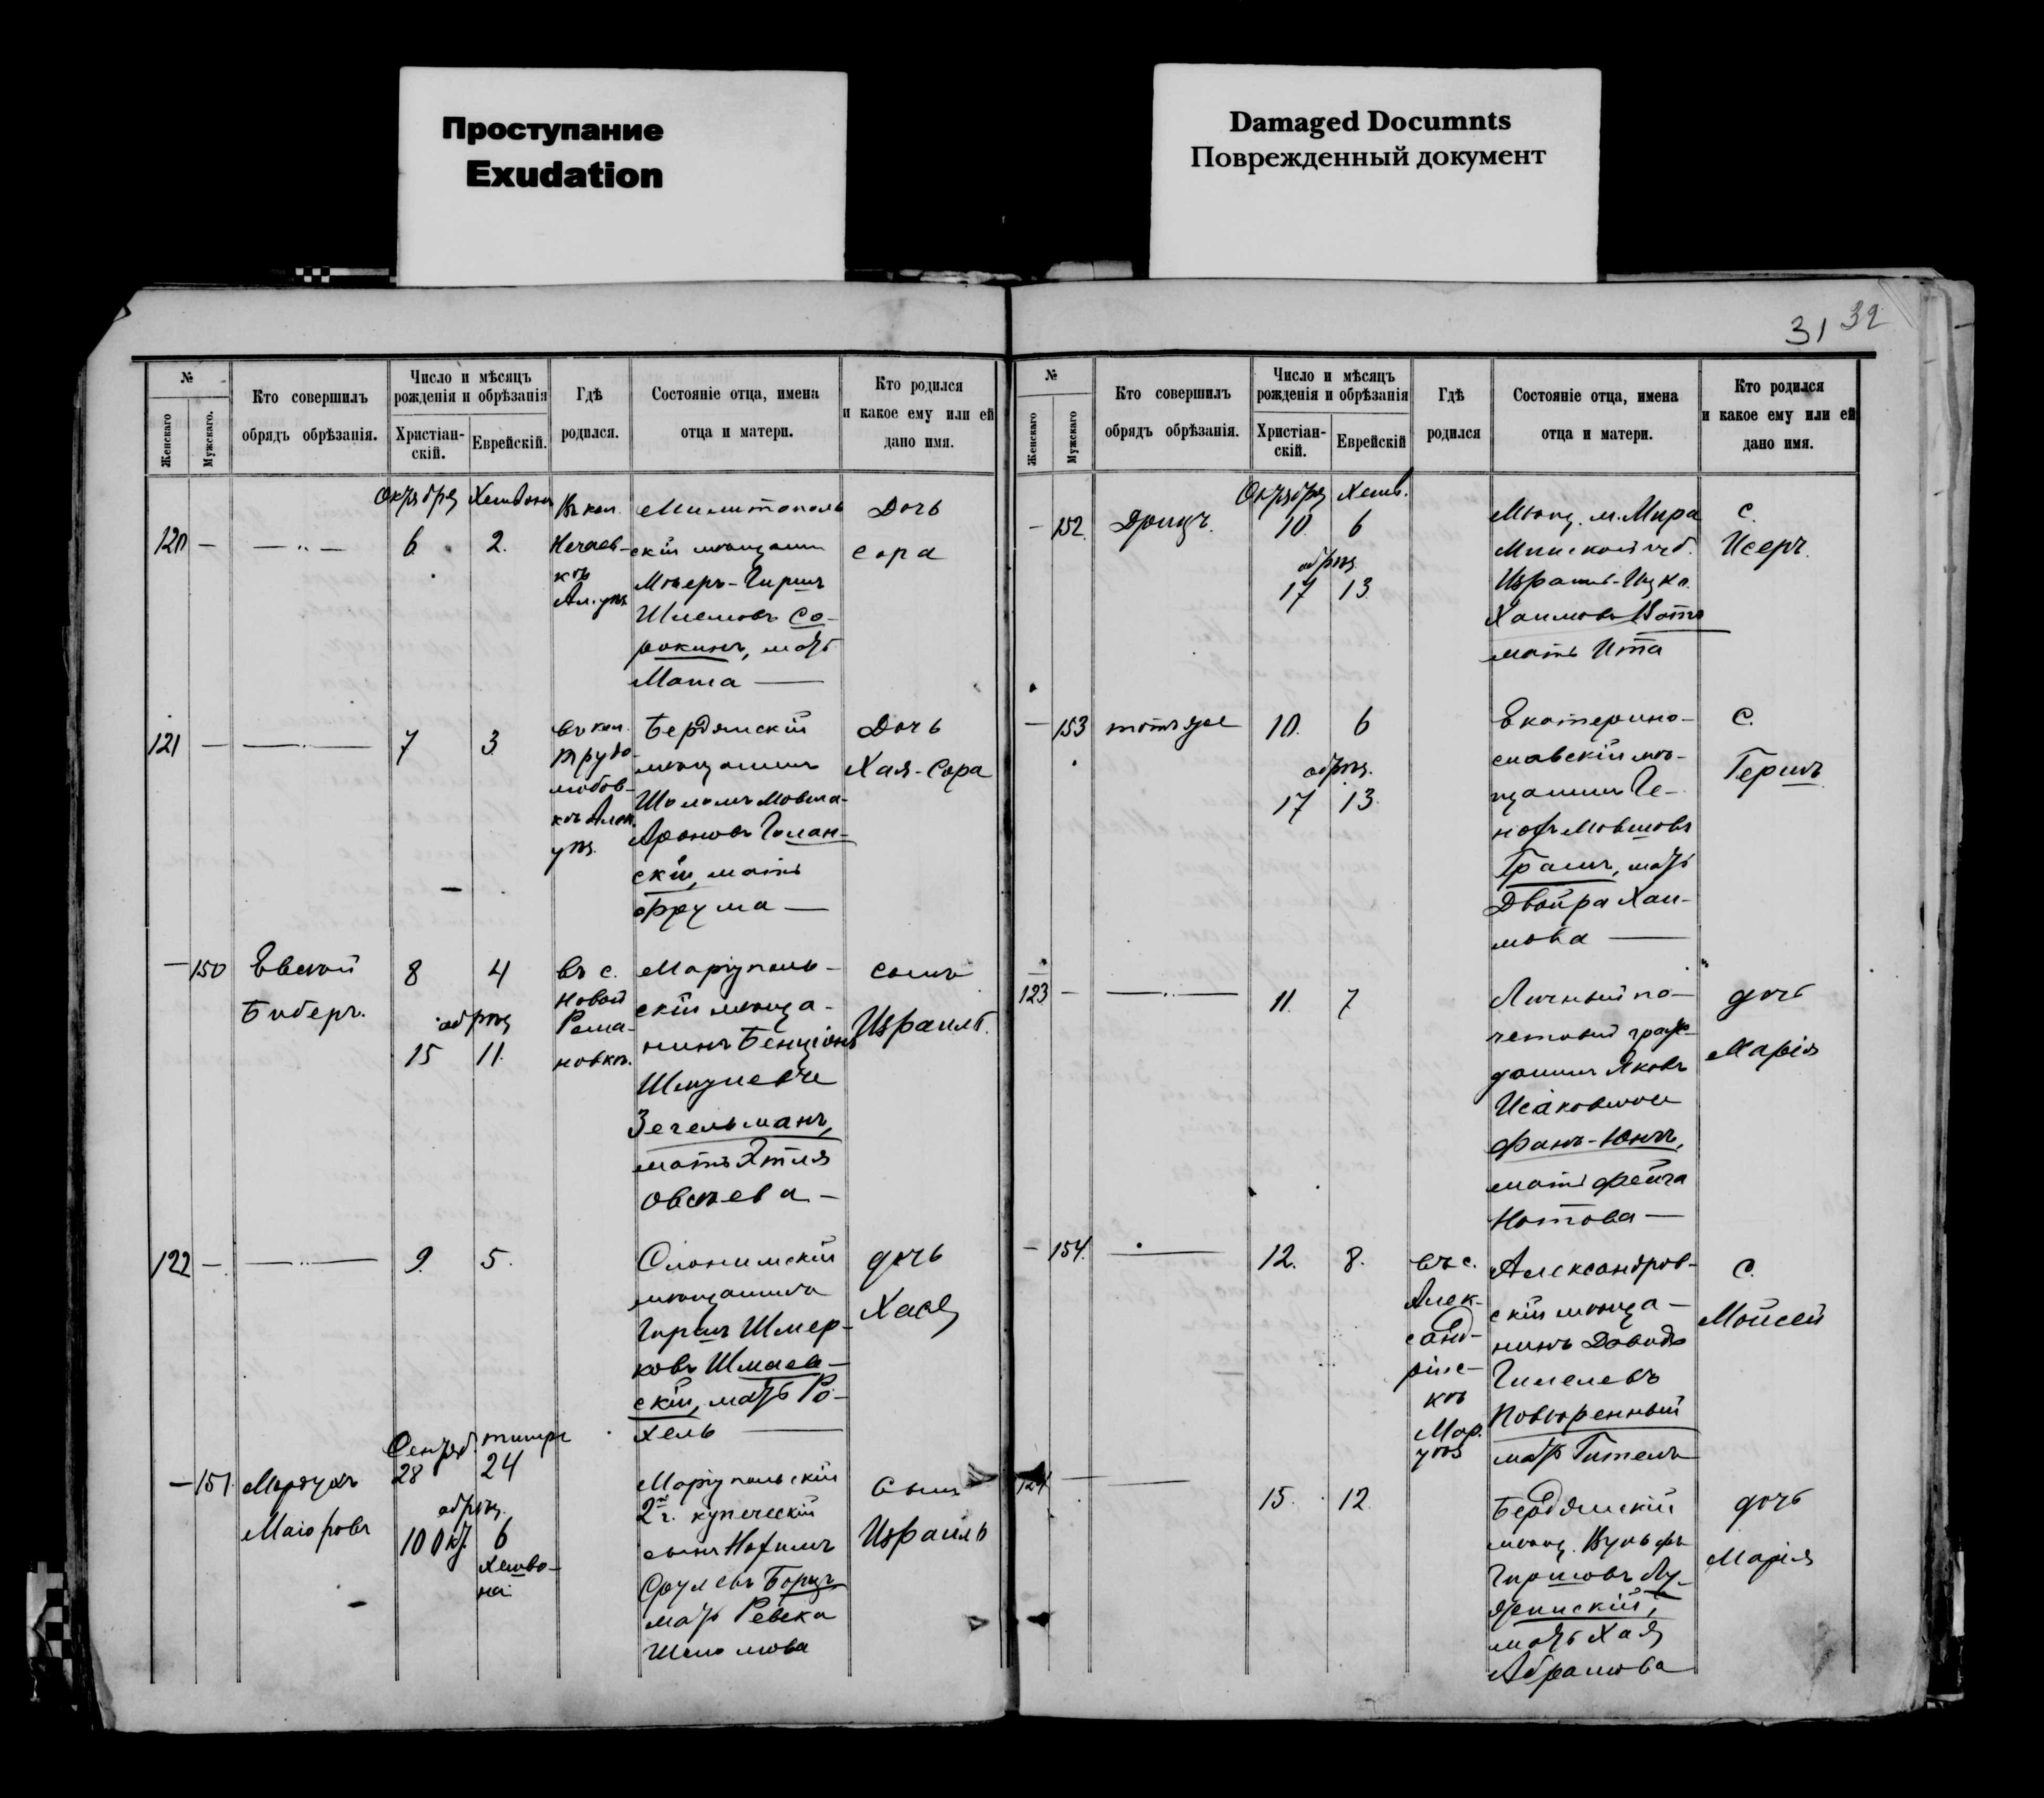 Проступание
Exudation
Damaged Documnts
Поврежденный документ
31 32
№
Женскаго
Мужскаго.
Кто совершилъ
обрядъ обрѣзанія.
Число и мѣсяцъ
рожденія и обрѣзанія
Христіан-
скій.
Еврейскій.
Гдѣ
родился.
Состояніе отца, имена
отца и матери.
Кто родился
и какое ему или ей
дано имя.
120 —
— „ —
Октября
6
2.
Въ кол.
Нечаев-
кѣ
Ал. уѣз
скій мѣщанин
Мееръ-Гирш
Шлемовъ Со-
рокинъ, мать
Маша —
Дочь
Сора
121 —
— „ —
7
3
въ кол.
Трудо-
любов-
уѣз.
Бердянскій
мѣщанинъ
Шоломъ Мовша-
Ароновъ Голан-
скій, мать
Фрума —
Дочь
Хая-Сора
— 150
Евсей
Биберъ.
8
4
обрѣз
15
11.
въ с.
Новой
Рома-
новкѣ.
Маріуполь-
скій мѣща-
нинъ Бенціонъ
Шмулевъ
Зегельманъ,
мать Этля
Овсѣева —
сынъ
Израиль.
122 —
— „ —
9.
5.
Слонимскій
мѣщанинъ
Гиршъ Шмер-
ковъ Шмаев-
скій, мать Ро-
хель —
дочь
Хася
— 151.
Мордухъ
Маіоровъ
Сентяб.
28
тишри
24
обрѣз.
10 Окт.
6
Хешво-
на
Маріупольскій
2й г. купеческій
сынъ Нохимъ
Срулевъ Борцъ
мать Ревека
Шоломова
Сынъ
Израиль
№
Женскаго
Мужскаго
Кто совершилъ
обрядъ обрѣзанія.
Число и мѣсяцъ
рожденія и обрѣзанія
Христіан-
скій.
Еврейскій
Гдѣ
родился
Состояніе отца, имена
отца и матери.
Кто родился
и какое ему или ей
дано имя.
— 152.
Октября
Хешв.
10.
6
обрѣз.
17
13
Мѣщ. м. Мира
Минской губ.
Израиль-Ицко
Хаимовъ
мать Ита
С.
Исеръ.
— 153
тотъ же
10.
6
обрѣз.
17
13.
Екатерино-
славскій мѣ-
щанинъ Ге-
Мовшовъ
мать
Двойра Хаи-
мова —
С.
Гершъ
123 —
— „ —
11.
7
Личный по-
четный граж-
данинъ Яковъ
Исаковичъ
Фанъ-Юнгъ,
мать Фейга
Нотова —
дочь
Марія
— 154.
12.
8.
въ с.
Алек-
санд-
ринс-
кѣ
Мар.
уѣз
Александров-
скій мѣща-
нинъ Давидъ
Гилелевъ
Повѣренный
мать Гитель
С.
Мойсей
124 —
15.
12.
Бердянскій
мѣщ. Вульфъ
Гиршовъ
мать Хая
Абрамова
дочь
Марія